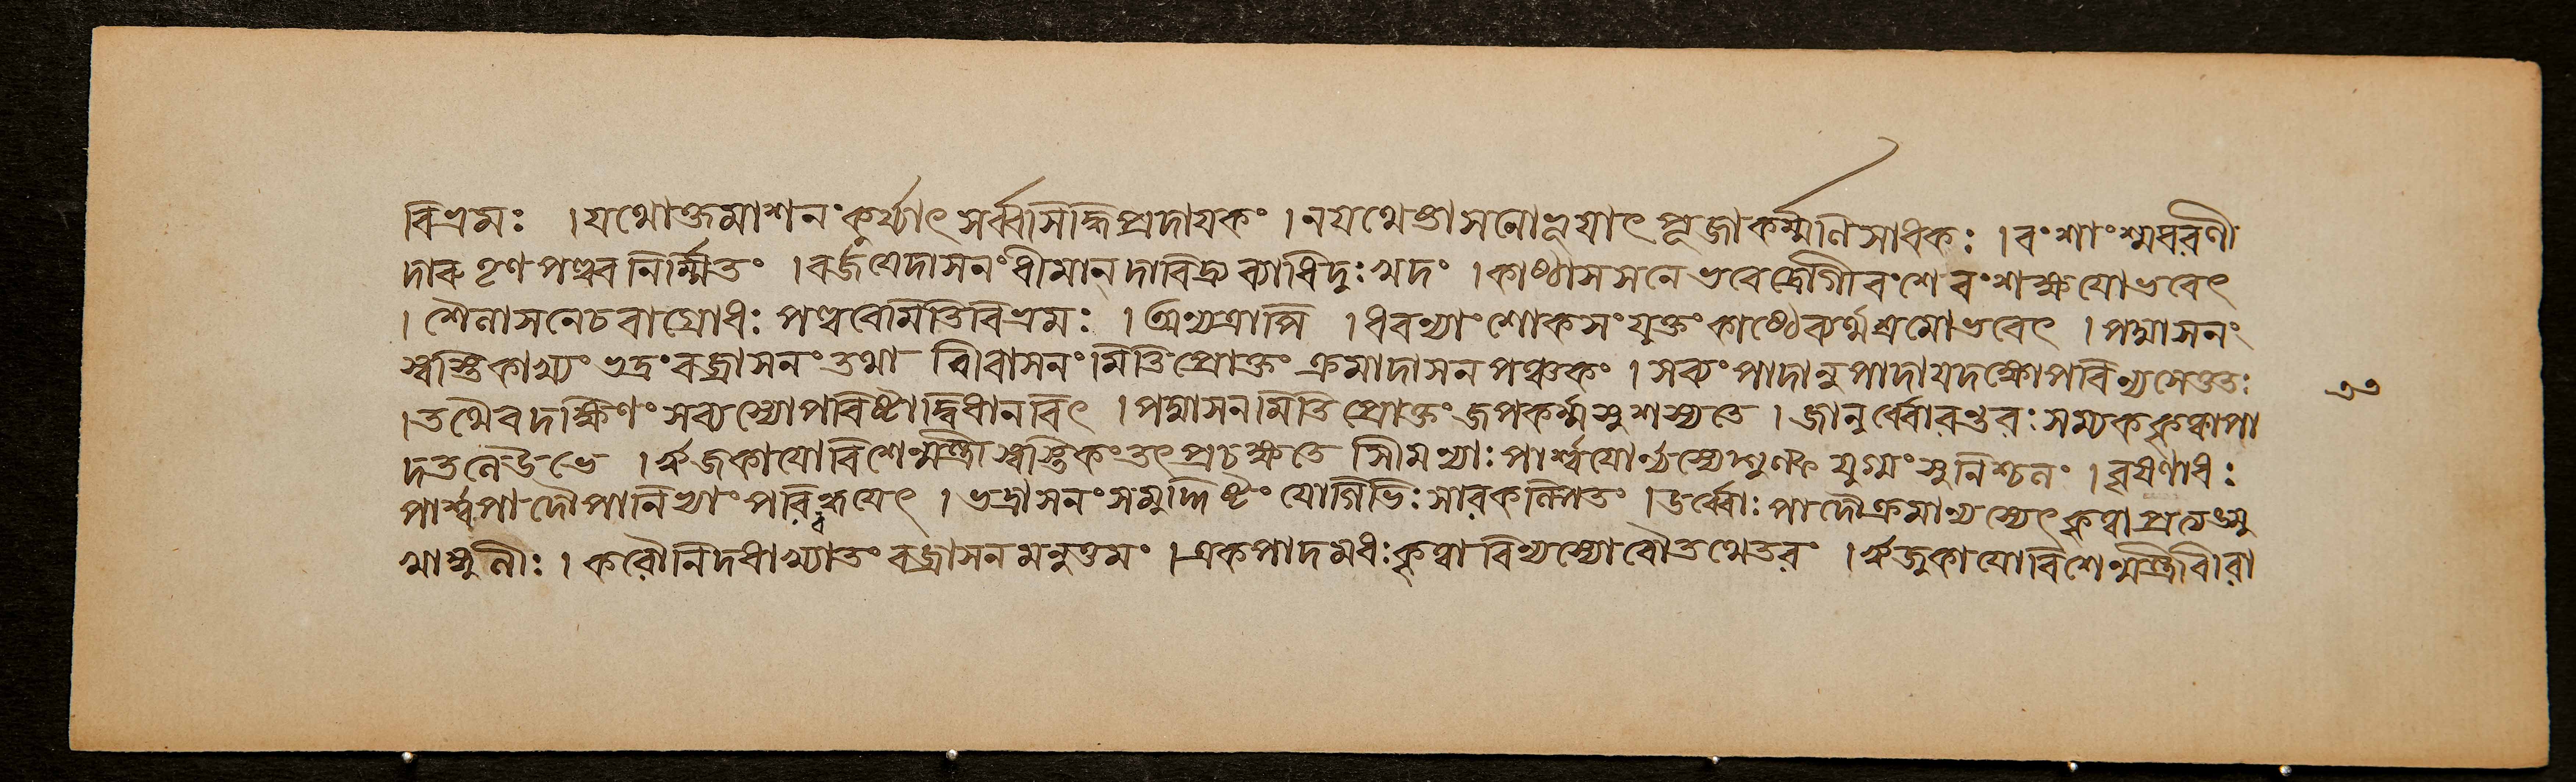 বিভ্রমঃ । যথোক্তমাশনং কুর্য্যাৎ সর্ব্বসিদ্ধিপ্রদায়কং । নযথেষ্তাসনোভূয়াৎ পূজাকর্ম্মণিসাধকঃ । বংশাংশ্মধরণী
দারুতৃণপল্লবনির্ম্মিতং । বর্জয়েদাসনংধীমান্ দারিদ্র্যব্যাধিদুঃখদং । কাষ্ঠাসসনে ভবেদ্রোগীবংশে বংশক্ষয়োভবেৎ
। শৈলাসনেচবাগ্রোধঃ পল্লবেমতিবিভ্রমঃ । অন্যত্রাপি । ধরণ্যাং শোকসংযুক্তং কাষ্ঠেব্যর্থশ্রমোভবেৎ । পদ্মাসনং
স্বস্তিকাখ্যং ভদ্রং বজ্রাসনং তথা বীরাসনংমিতিপ্রোক্তং ক্রমাদাসনপঞ্চকং । সব্যংপাদানুপাদায়দক্ষোপবিন্যসেত্ততঃ
। তথৈবদক্ষিণং সব্যস্যোপরিষ্টাদ্বিধানবিৎ । পদ্মাসনমিতি প্রোক্তং জপকর্ম্মসুশস্যতে । জানুর্ব্বোরন্তরঃ সম্যককৃত্বাপা
দতলেউভে । ঋজকায়োবিশেন্মন্ত্রীস্বস্তিকংতৎপ্রচক্ষতে সীমন্যাঃ পার্শ্বয়োর্ন্যস্যেদ্গুল্ফ যুগ্মং সুনিশ্চলং । বৃষণাধঃ
পার্শ্বপাদৌপানিভ্যাং পরিবন্ধয়েৎ । ভদ্রাসনং সমুদ্দিষ্টং যোগিভিঃ সারকল্পিতং । উর্ব্বোঃ পাদৌক্রমান্যস্যেৎ কৃত্বাপ্রত্যঙমু
খাঙ্গুলীঃ । করৌনিদধ্যাখ্যাতং বজ্রাসনমনুত্তমং । একপাদমধঃকৃত্বা বিন্যস্যোরৌতথেতরং । ঋজুকায়োবিশেন্মন্ত্রিবীরা
৩৩